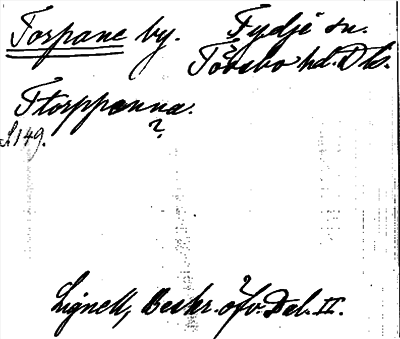 Torpane by. Fydjê sn.
Tössbo hd. Dls.
Ttorppenna.
?
L149.
Lignell, Beskr. öfv. Dal. II.